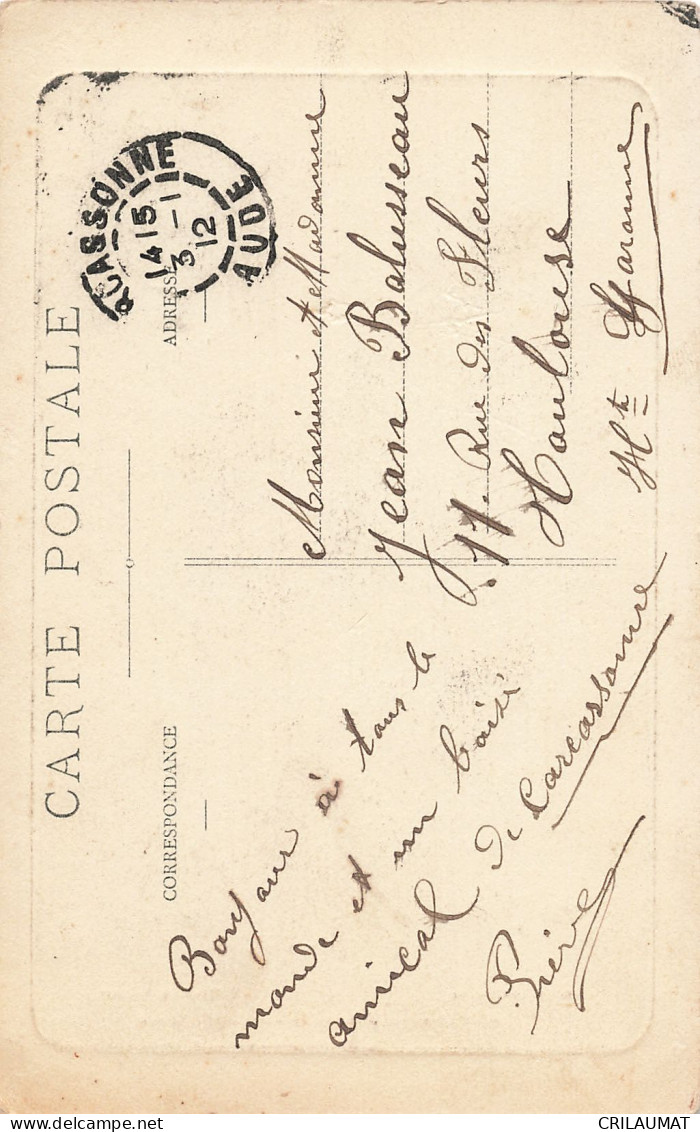 CARTE POSTALE
CORRESPONDANCE
ADRESSE
CARCASSONNE
14 15
3 - 1
12
AUDE
Bonjour à tous le
monde et un baisé
amical de Carcassonne
Monsieur et Madame
Jean Balusseau
17. Rue des Fleurs
Toulouse
Hte Garonne
CRILAUMAT